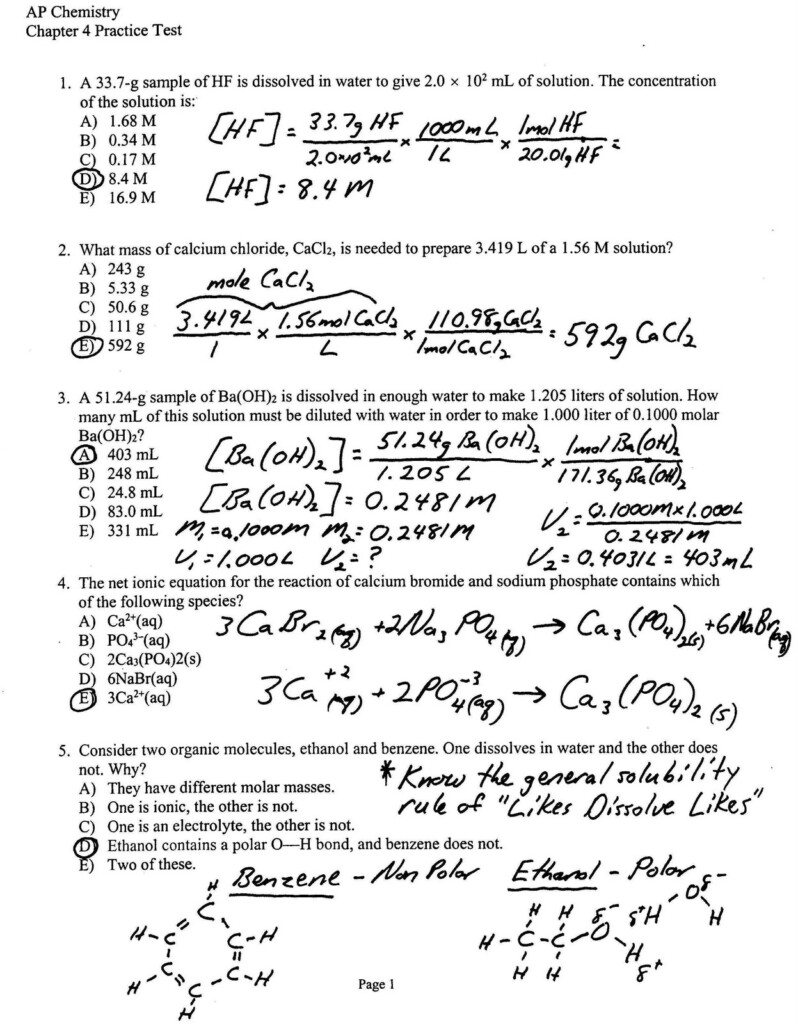 AP Chemistry
Chapter 4 Practice Test
1. A 33.7-g sample of HF is dissolved in water to give 2.0 × 10² mL of solution. The concentration
of the solution is:
A) 1.68 M
B) 0.34 M
C) 0.17 M
D) 8.4 M
E) 16.9 M
[HF] = 33.7g HF / 2.0×10² mL × 1000 mL / 1L × 1mol HF / 20.01g HF =
[HF] = 8.4 M
2. What mass of calcium chloride, CaCl₂, is needed to prepare 3.419 L of a 1.56 M solution?
A) 243 g
B) 5.33 g
C) 50.6 g
D) 111 g
E) 592 g
mole CaCl₂
3.419L / 1 × 1.56 mol CaCl₂ / L × 110.98g CaCl₂ / 1mol CaCl₂ = 592g CaCl₂
3. A 51.24-g sample of Ba(OH)₂ is dissolved in enough water to make 1.205 liters of solution. How
many mL of this solution must be diluted with water in order to make 1.000 liter of 0.1000 molar
Ba(OH)₂?
A) 403 mL
B) 248 mL
C) 24.8 mL
D) 83.0 mL
E) 331 mL
[Ba(OH)₂] = 51.24g Ba(OH)₂ / 1.205 L × 1mol Ba(OH)₂ / 171.36g Ba(OH)₂
[Ba(OH)₂] = 0.2481M
M₁ = 0.1000M M₂ = 0.2481M
V₁ = 1.000L V₂ = ?
V₂ = 0.1000M × 1.000L / 0.2481M
V₂ = 0.4031L = 403mL
4. The net ionic equation for the reaction of calcium bromide and sodium phosphate contains which
of the following species?
A) Ca²⁺(aq)
B) PO₄³⁻(aq)
C) 2Ca₃(PO₄)2(s)
D) 6NaBr(aq)
E) 3Ca²⁺(aq)
3CaBr₂(aq) + 2Na₃PO₄(aq) → Ca₃(PO₄)₂(s) + 6NaBr(aq)
3Ca⁺²(aq) + 2PO₄⁻³(aq) → Ca₃(PO₄)₂(s)
5. Consider two organic molecules, ethanol and benzene. One dissolves in water and the other does
not. Why?
A) They have different molar masses.
B) One is ionic, the other is not.
C) One is an electrolyte, the other is not.
D) Ethanol contains a polar O—H bond, and benzene does not.
E) Two of these.
* Know the general solubility
rule of "Likes Dissolve Likes"
Benzene - Non Polar
Ethanol - Polar
H
C
H-C C-H
C C-H
H C
H
δ-
O
H H δ- δ+H H
H-C-C-O
H
H H δ+
Page 1